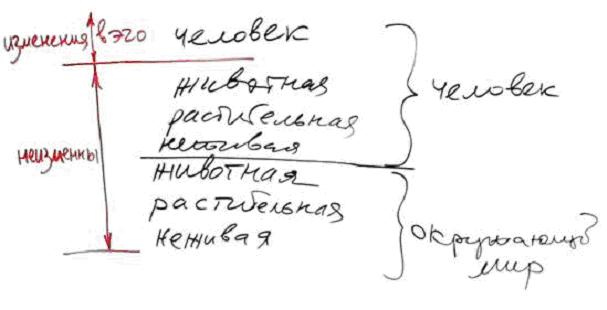 изменения в эго человек
животная
растительная
человек
неживая
неизменны
животная
растительная
неживая
окружающий
мир